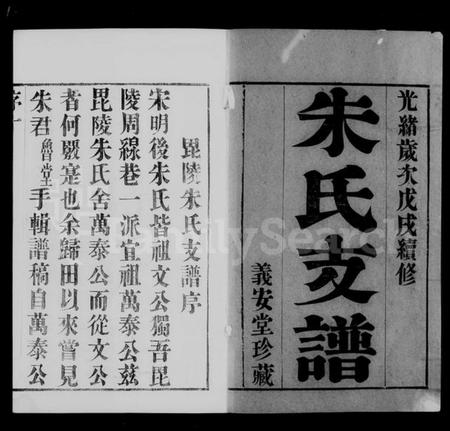 光緒歲次戊戌續修
朱氏支譜
義安堂珍藏
毘陵朱氏支譜序
宋明後朱氏皆祖文公獨吾毘
陵周線巷一派宜祖萬泰公茲
毘陵朱氏舍萬泰公而從文公
者何歟寔也余歸田以來嘗見
朱君魯堂手輯譜稿自萬泰公
序一
FamilySearch